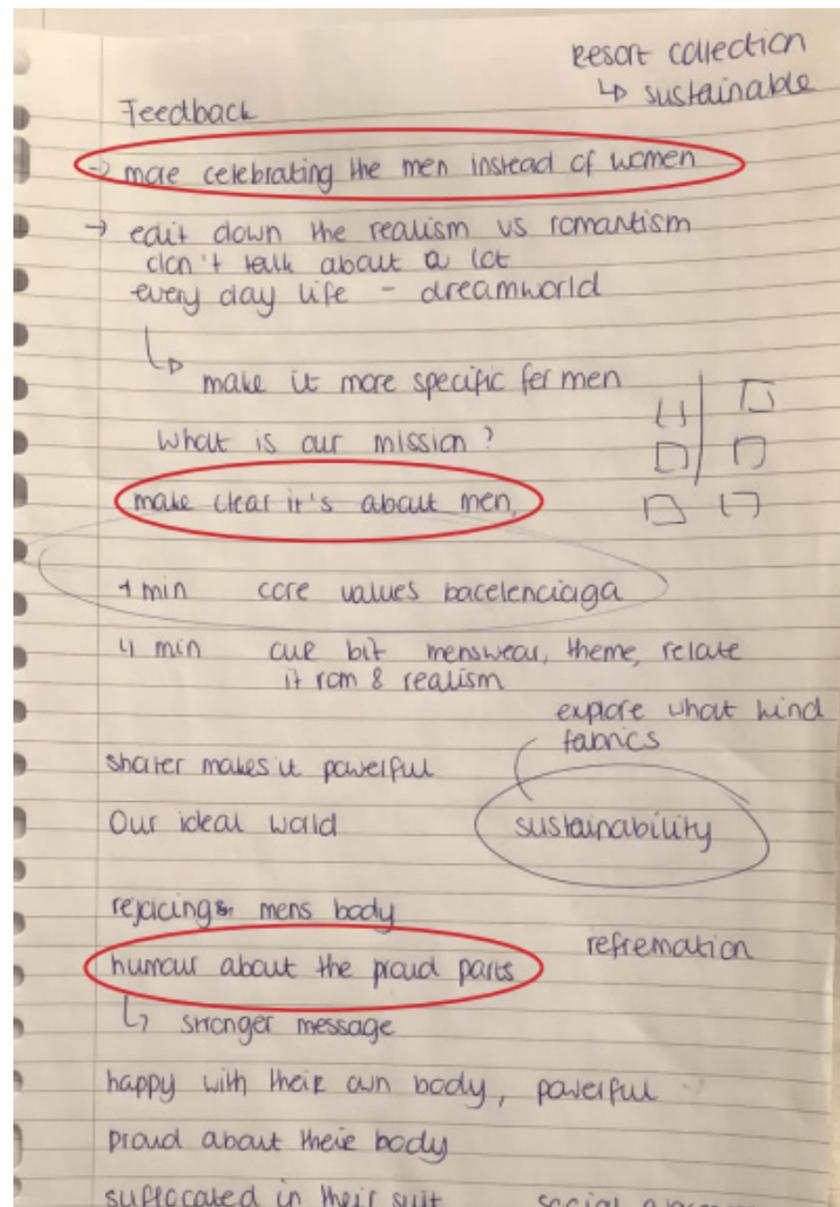 Resort collection
↳ sustainable
Feedback
→ more celebrating the men instead of women
→ edit down the realism vs romantism
don't talk about a lot
every day life - dreamworld
↳ make it more specific for men
What is our mission?
make clear it's about men,
1 min core values bacelenciaga
4 min our bit menswear, theme, relate
it rom & realism
explore what kind
fabrics
shorter makes it powerful
Our ideal world
sustainability
rejoicing mens body
refremation
humour about the proud parts
↳ stronger message
happy with their own body, powerful
proud about their body
suffocated in their suit social